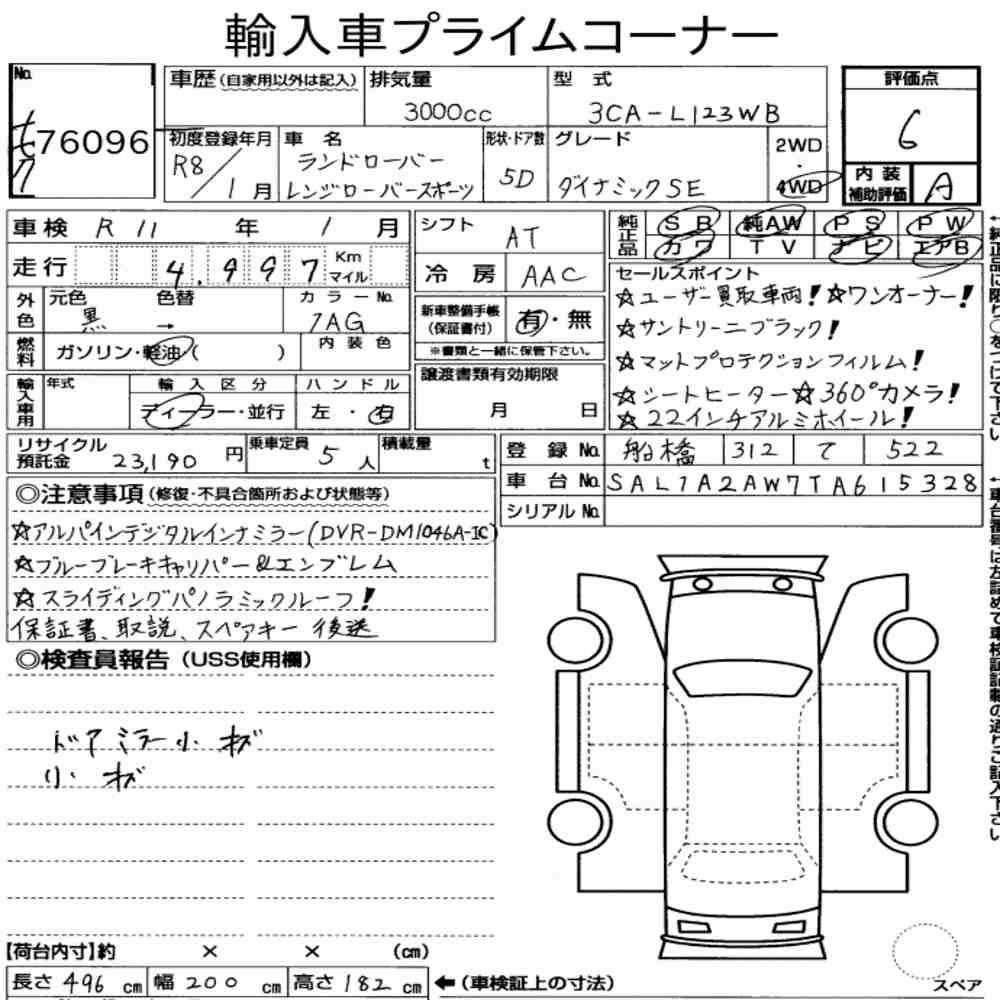 輸入車プライムコーナー
No.
76096
車歴(自家用以外は記入)
排気量
3000cc
型 式
3CA-L123WB
評価点
6
初度登録年月
R8/1月
車 名
ランドローバー
レンジローバースポーツ
形状・ドア数
5D
グレード
ダイナミックSE
2WD
・
4WD
内 装
補助評価
A
車検 R 11 年 1 月
走行 4,997 Km
マイル
シフト
AT
冷 房 AAC
純正品
SR 純AW PS PW
カワ TV ナビ エアB
外色
元色 色替
黒 →
カラーNo.
1AG
燃料
ガソリン・軽油( )
内 装 色
新車整備手帳
(保証書付)
有・無
※書類と一緒に保管下さい。
セールスポイント
☆ユーザー買取車両!☆ワンオーナー!
☆サントリーニブラック!
☆マットプロテクションフィルム!
☆シートヒーター☆360°カメラ!
☆22インチアルミホイール!
輸入車用
年式
輸 入 区 分
ディーラー・並行
ハ ン ド ル
左 ・ 右
譲渡書類有効期限
月 日
リサイクル
預託金 23,190 円
乗車定員
5 人
積載量
t
登 録 No. 船橋 312 て 522
車 台 No. SAL1A2AW7TA615328
シリアル No.
◎注意事項(修復・不具合箇所および状態等)
☆アルパインデジタルインナミラー(DVR-DM1046A-IC)
☆ブルーブレーキキャリパー&エンブレム
☆スライディングパノラミックルーフ!
保証書、取説、スペアキー 後送
◎検査員報告(USS使用欄)
ドアミラー小キズ
小キズ
【荷台内寸】約 × × (cm)
長さ 496 cm 幅 200 cm 高さ 182 cm ←(車検証上の寸法)
スペア
↑純正品に限り○をつけて下さい
↑車台番号は左詰めで車検証記載の通りご記入下さい